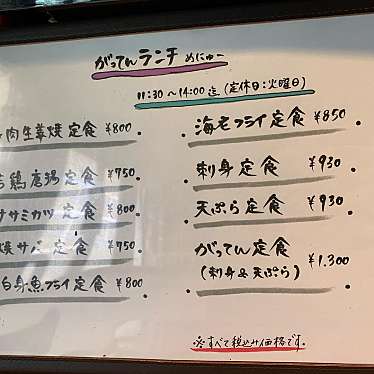 がってんランチ めにゅー
11:30〜14:00迄(定休日:火曜日)
肉生姜焼定食 ¥800
鶏唐揚定食 ¥750
ササミカツ定食 ¥800
焼サバ定食 ¥750
白身魚フライ定食 ¥800
海老フライ定食 ¥850
刺身定食 ¥930
天ぷら定食 ¥930
がってん定食
(刺身&天ぷら) ¥1.300
※すべて税込み価格です。